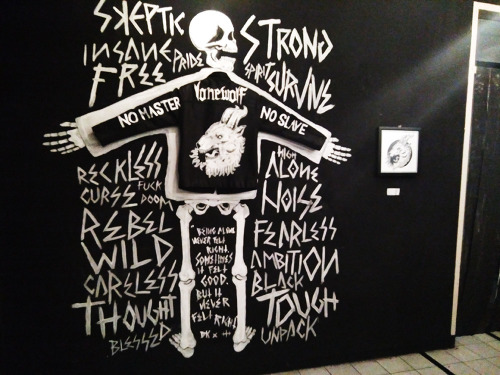 SKEPTIC
STRONG
INSANE
PRIDE
SPIRIT
FREE
SURVIVE
Lonewolf
NO MASTER
NO SLAVE
RECKLESS
HIGH
ALONE
CURSE
FUCK
DOOM
NOISE
REBEL
FEARLESS
WILD
AMBITION
CARELESS
BLACK
THOUGHT
TOUGH
BLESSED
UNPACK
"BEING ALONE
NEVER FELT
RIGHT.
SOMETIMES
IT FELT
GOOD.
BUT IT
NEVER
FELT RIGHT